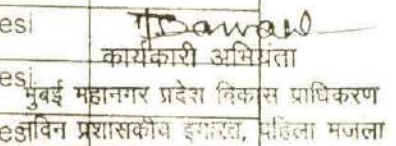 esi
कार्यकारी अभियंता
esi
मुंबई महानगर प्रदेश विकास प्राधिकरण
esi
नविन प्रशासकीय इमारत, पहिला मजला